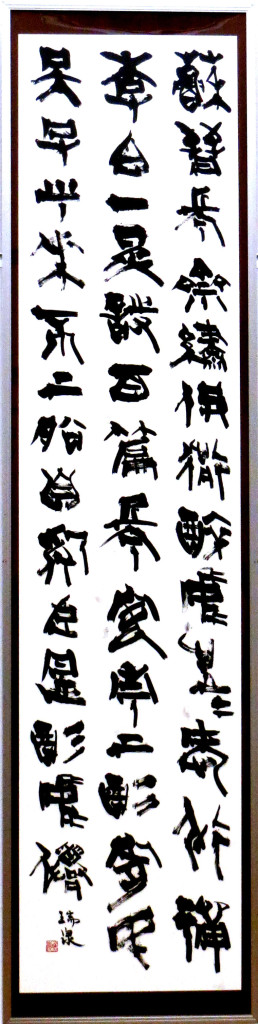 蘇晉長齋繡佛前醉中往々愛逃禪
李白一斗詩百篇長安市上酒家眠
天子呼來不上船自稱臣是酒中僊
瑞泉